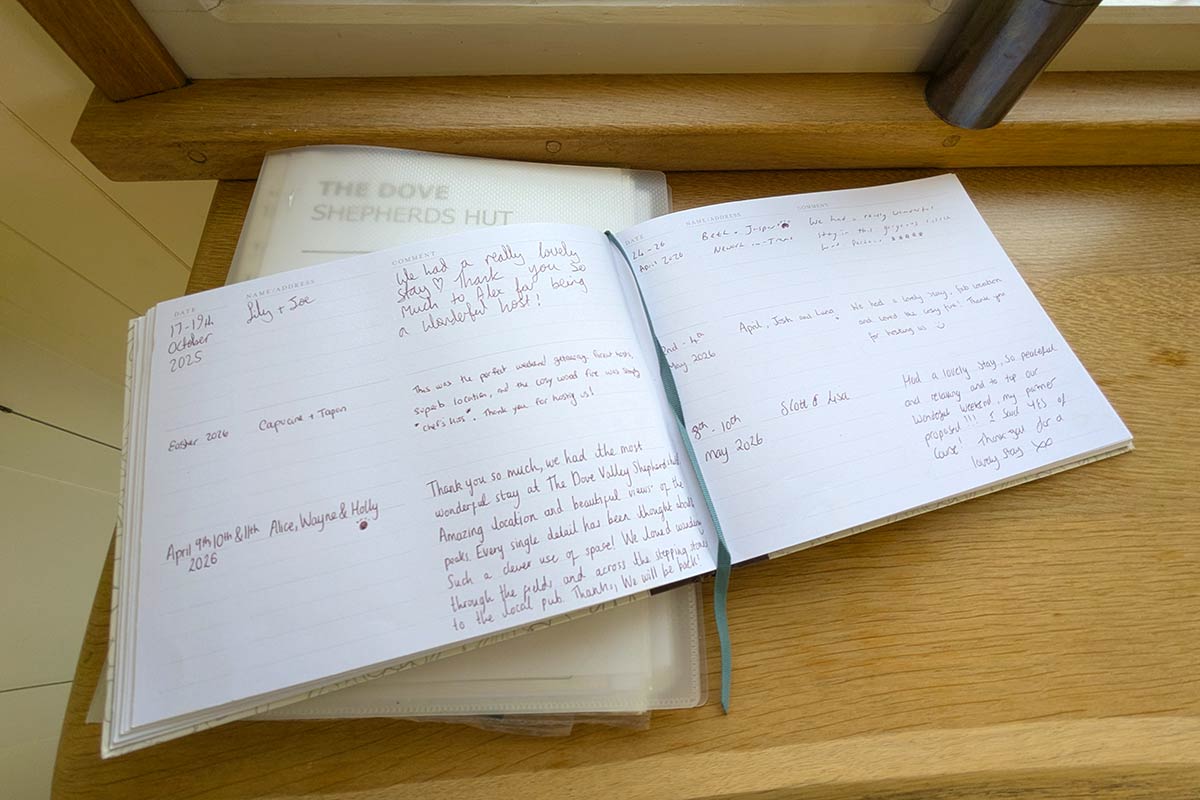 THE DOVE
SHEPHERDS HUT
DATE
NAME/ADDRESS
COMMENT
17-19th
October
2025
Lily + Joe
We had a really lovely
stay♡ Thank you so
much to Alex for being
a wonderful host!
Easter 2026
Capucine + Tapan
This was the perfect weekend getaway.
superb location, and the cosy wood fire was simply
*chef's kiss*. Thank you for hosting us!
April 9th 10th & 11th
2026
Alice, Wayne & Holly
Thank you so much, we had the most
wonderful stay at The Dove Valley Shepherds hut
Amazing location and beautiful views of the
peaks. Every single detail has been thought about
Such a clever use of space! We loved wandering
through the fields and across the stepping stones
to the local pub. Thanks, We will be back!
DATE
NAME/ADDRESS
COMMENT
24-26
April 2026
Beth +
Newark
We had a really wonderful
stay in this gorgeous
2nd - 4th
May 2026
April, Josh and Luna
We had a lovely stay, fab location
and loved the cosy fire! Thank you
for hosting us :)
8th - 10th
May 2026
Scott & Lisa
Had a lovely stay, so peaceful
and relaxing and to top our
wonderful weekend, my partner
proposed!!! I said YES of
course! Thank you for a
lovely stay xx